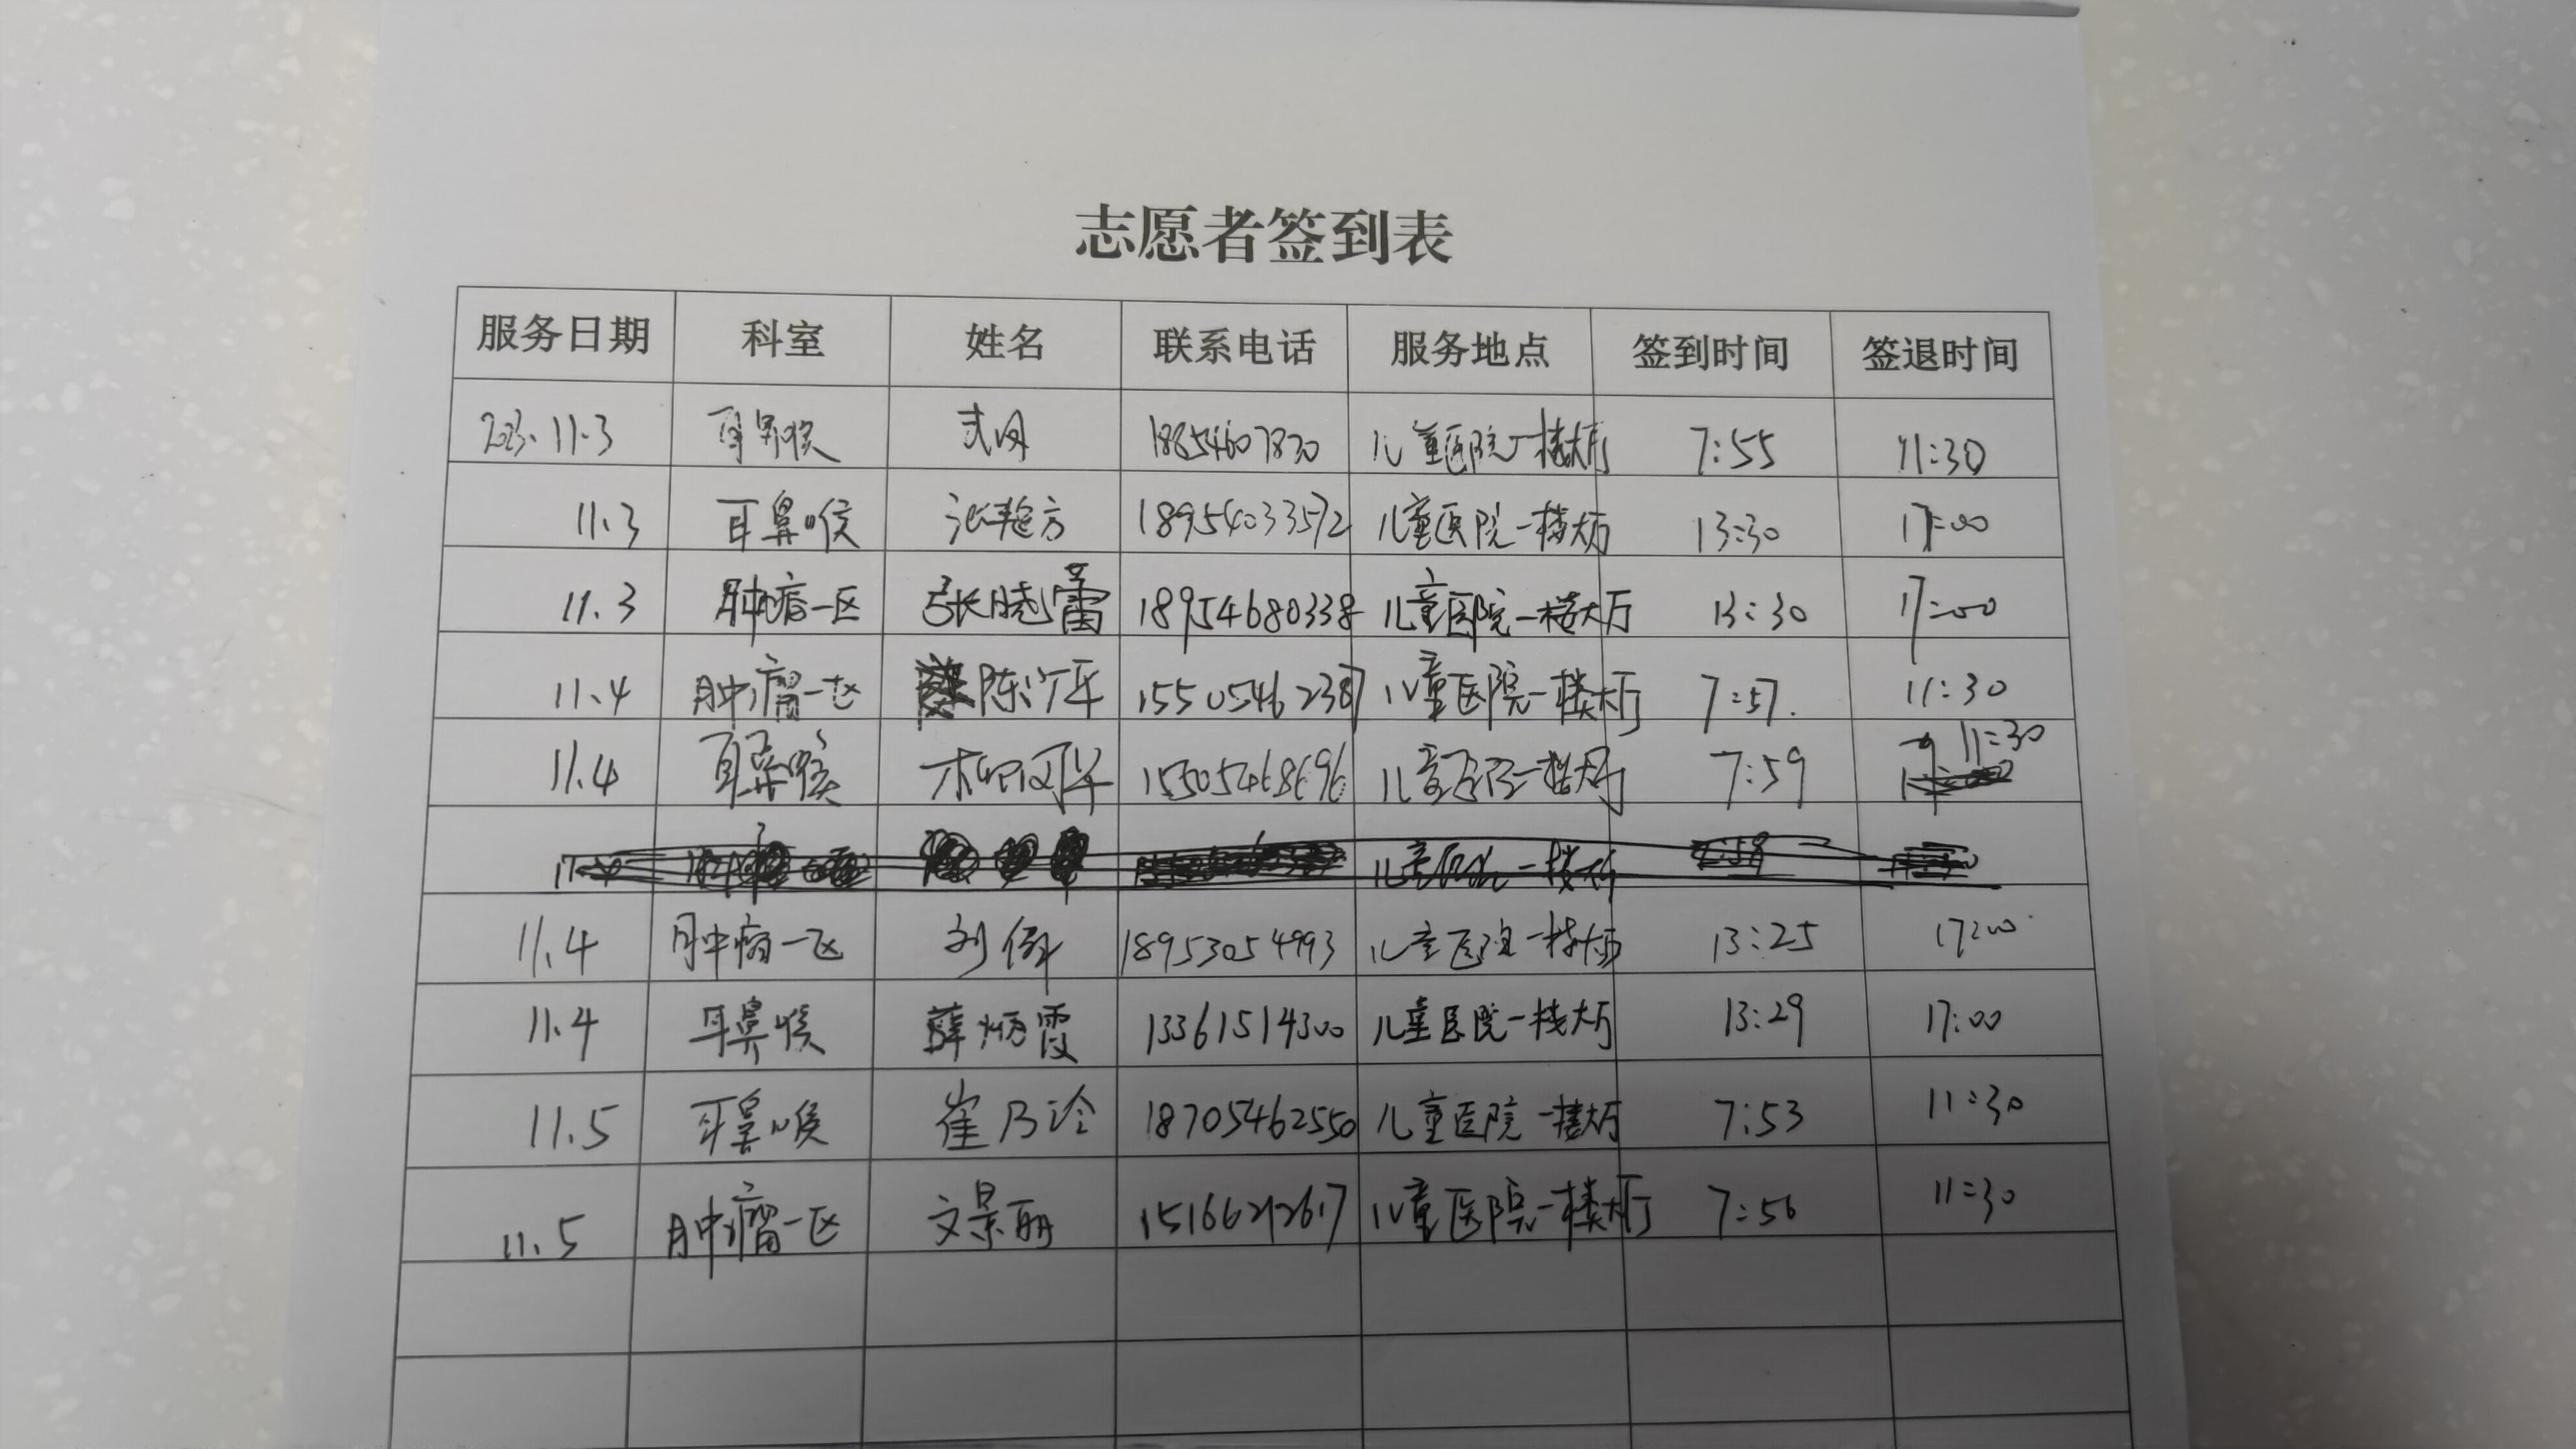 志愿者签到表
服务日期 科室 姓名 联系电话 服务地点 签到时间 签退时间
2023.11.3 耳鼻喉 18854607830 儿童医院一楼大厅 7:55 11:30
11.3 耳鼻喉 18954033572 儿童医院一楼大厅 13:30 17:00
11.3 肿瘤一区 张晓蕾 18954680338 儿童医院一楼大厅 13:30 17:00
11.4 肿瘤一区 陈 15505462387 儿童医院一楼大厅 7:57. 11:30
11.4 耳鼻喉 15505468696 儿童医院一楼大厅 7:59 11:30
儿童医院一楼大厅
11.4 肿瘤一区 刘倩 18953054993 儿童医院一楼大厅 13:25 17:00
11.4 耳鼻喉 薛炳霞 13361514300 儿童医院一楼大厅 13:29 17:00
11.5 耳鼻喉 崔乃玲 18705462550 儿童医院一楼大厅 7:53 11:30
11.5 肿瘤一区 文景丽 15166212617 儿童医院一楼大厅 7:56 11:30